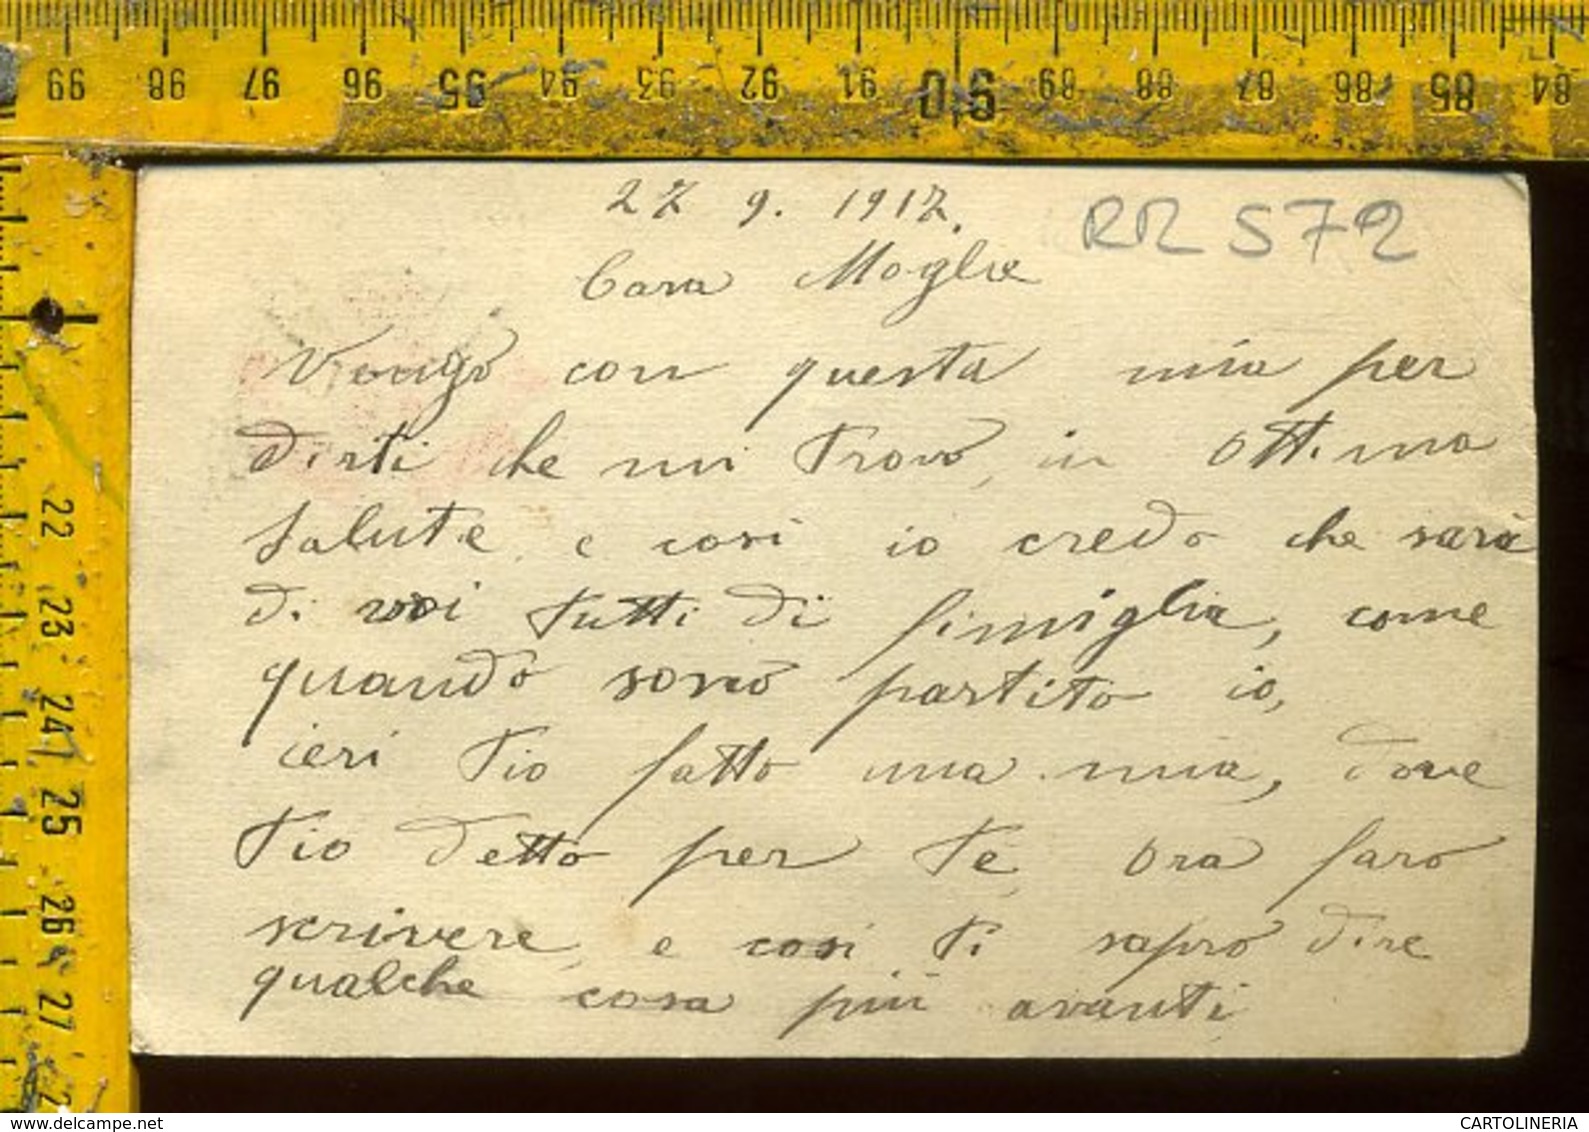 99 98 97 96 95 94 93 92 91 90 89 88 87 86 85 84
27 9. 1917.
RR 572
Cara Moglie
Vengo con questa mia per
dirti che mi trovo, in ottima
salute, e così io credo che sarà
di voi tutti di fimiglia, come
quando sono partito io,
ieri tio fatto una mia, dove
tio detto per te, ora farò
scrivere, e così ti saprò dire
qualche cosa più avanti,
22
23
24
25
26
27
www.delcampe.net
CARTOLINERIA